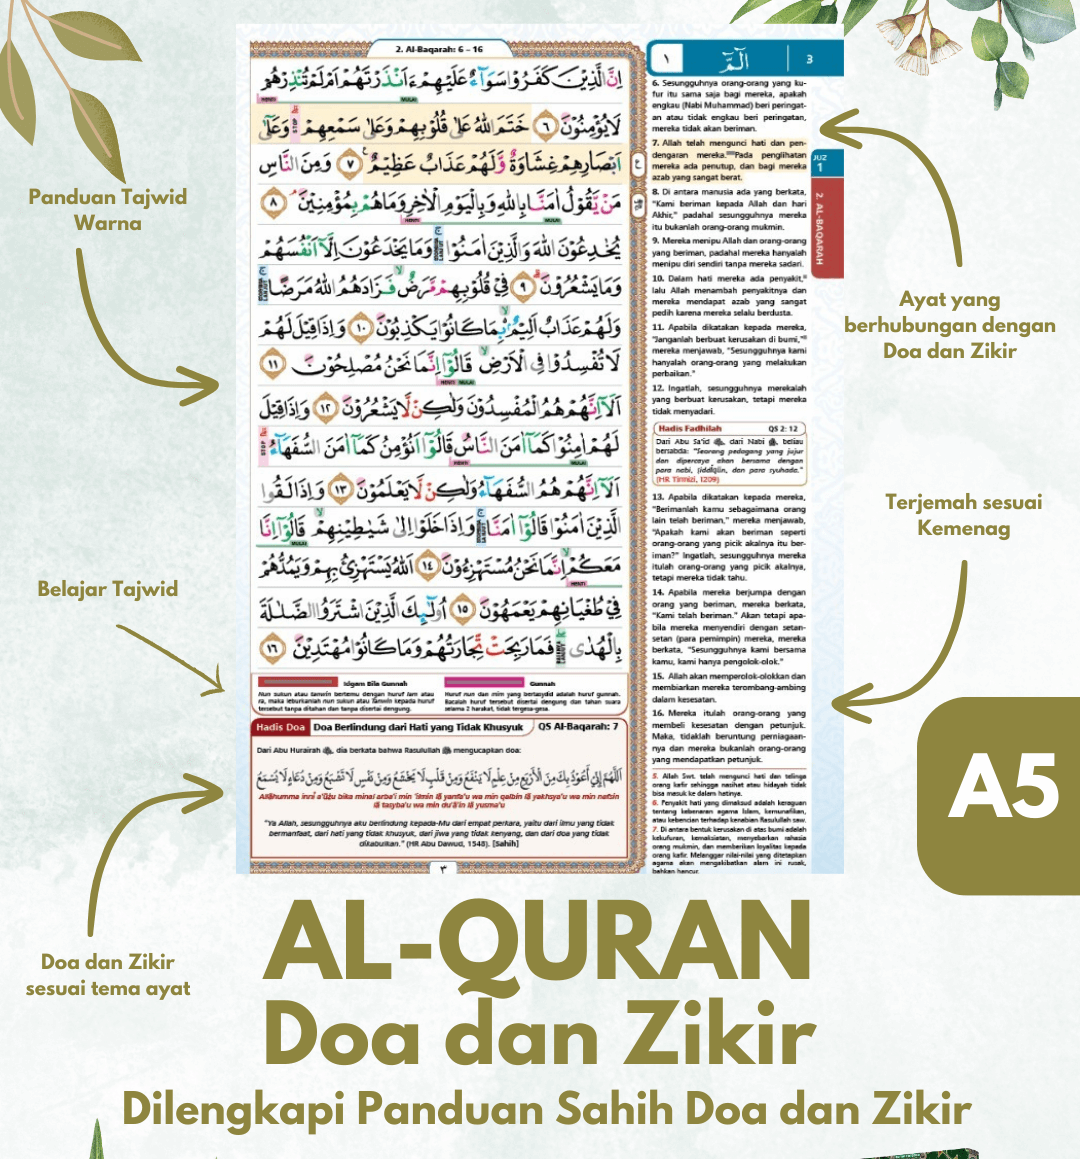 2. Al-Baqarah: 6 – 16
اِنَّ الَّذِيْنَ كَفَرُوْا سَوَاۤءٌ عَلَيْهِمْ ءَاَنْذَرْتَهُمْ اَمْ لَمْ تُنْذِرْهُمْ
لَا يُؤْمِنُوْنَ ٦ خَتَمَ اللّٰهُ عَلٰى قُلُوْبِهِمْ وَعَلٰى سَمْعِهِمْ ۗ وَعَلٰٓى
اَبْصَارِهِمْ غِشَاوَةٌ وَّلَهُمْ عَذَابٌ عَظِيْمٌ ٧ وَمِنَ النَّاسِ
مَنْ يَّقُوْلُ اٰمَنَّا بِاللّٰهِ وَبِالْيَوْمِ الْاٰخِرِ وَمَا هُمْ بِمُؤْمِنِيْنَۘ ٨
يُخٰدِعُوْنَ اللّٰهَ وَالَّذِيْنَ اٰمَنُوْا ۚ وَمَا يَخْدَعُوْنَ اِلَّآ اَنْفُسَهُمْ
وَمَا يَشْعُرُوْنَۗ ٩ فِيْ قُلُوْبِهِمْ مَّرَضٌۙ فَزَادَهُمُ اللّٰهُ مَرَضًاۚ
وَلَهُمْ عَذَابٌ اَلِيْمٌ ۢبِمَا كَانُوْا يَكْذِبُوْنَ ١٠ وَاِذَا قِيْلَ لَهُمْ
لَا تُفْسِدُوْا فِى الْاَرْضِۙ قَالُوْٓا اِنَّمَا نَحْنُ مُصْلِحُوْنَ ١١
اَلَآ اِنَّهُمْ هُمُ الْمُفْسِدُوْنَ وَلٰكِنْ لَّا يَشْعُرُوْنَ ١٢ وَاِذَا قِيْلَ
لَهُمْ اٰمِنُوْا كَمَآ اٰمَنَ النَّاسُ قَالُوْٓا اَنُؤْمِنُ كَمَآ اٰمَنَ السُّفَهَاۤءُ ۗ
اَلَآ اِنَّهُمْ هُمُ السُّفَهَاۤءُ وَلٰكِنْ لَّا يَعْلَمُوْنَ ١٣ وَاِذَا لَقُوا
الَّذِيْنَ اٰمَنُوْا قَالُوْٓا اٰمَنَّا ۚ وَاِذَا خَلَوْا اِلٰى شَيٰطِيْنِهِمْ ۙ قَالُوْٓا اِنَّا
مَعَكُمْ ۙ اِنَّمَا نَحْنُ مُسْتَهْزِءُوْنَ ١٤ اَللّٰهُ يَسْتَهْزِئُ بِهِمْ وَيَمُدُّهُمْ
فِيْ طُغْيَانِهِمْ يَعْمَهُوْنَ ١٥ اُولٰۤىِٕكَ الَّذِيْنَ اشْتَرَوُا الضَّلٰلَةَ
بِالْهُدٰىۖ فَمَا رَبِحَتْ تِّجَارَتُهُمْ وَمَا كَانُوْا مُهْتَدِيْنَ ١٦
Idgam Bila Gunnah
Nun sukun atau tanwin bertemu dengan huruf lam atau
ra, maka leburkanlah nun sukun atau Tanwin kepada huruf
tersebut tanpa ditahan dan tanpa disertai dengung.
Gunnah
Huruf nun dan mim yang bertasydid adalah huruf gunnah.
Bacalah huruf tersebut disertai dengung dan tahan suara
selama 2 harakat, tidak tergesa-gesa.
Hadis Doa Doa Berlindung dari Hati yang Tidak Khusyuk QS Al-Baqarah: 7
Dari Abu Hurairah ﷺ, dia berkata bahwa Rasulullah ﷺ mengucapkan doa:
اَللّٰهُمَّ اِنِّيْ اَعُوْذُ بِكَ مِنَ الْاَرْبَعِ مِنْ عِلْمٍ لَا يَنْفَعُ وَمِنْ قَلْبٍ لَا يَخْشَعُ وَمِنْ نَفْسٍ لَا تَشْبَعُ وَمِنْ دُعَاءٍ لَا يُسْمَعُ
Allāhumma innī a'ūżu bika minal arba'i min 'ilmin lā yanfa'u wa min qalbin lā yakhsya'u wa min nafsin
lā tasyba'u wa min du'ā'in lā yusma'u
"Ya Allah, sesungguhnya aku berlindung kepada-Mu dari empat perkara, yaitu dari ilmu yang tidak
bermanfaat, dari hati yang tidak khusyuk, dari jiwa yang tidak kenyang, dan dari doa yang tidak
dikabulkan." (HR Abu Dawud, 1548). [Sahih]
٣
١ الۤمّۤ 3
6. Sesungguhnya orang-orang yang ku-
fur itu sama saja bagi mereka, apakah
engkau (Nabi Muhammad) beri peringat-
an atau tidak engkau beri peringatan,
mereka tidak akan beriman.
7. Allah telah mengunci hati dan pen-
dengaran mereka. Pada penglihatan
mereka ada penutup, dan bagi mereka
azab yang sangat berat.
8. Di antara manusia ada yang berkata,
"Kami beriman kepada Allah dan hari
Akhir," padahal sesungguhnya mereka
itu bukanlah orang-orang mukmin.
9. Mereka menipu Allah dan orang-orang
yang beriman, padahal mereka hanyalah
menipu diri sendiri tanpa mereka sadari.
10. Dalam hati mereka ada penyakit,
lalu Allah menambah penyakitnya dan
mereka mendapat azab yang sangat
pedih karena mereka selalu berdusta.
11. Apabila dikatakan kepada mereka,
"Janganlah berbuat kerusakan di bumi,"
mereka menjawab, "Sesungguhnya kami
hanyalah orang-orang yang melakukan
perbaikan."
12. Ingatlah, sesungguhnya merekalah
yang berbuat kerusakan, tetapi mereka
tidak menyadari.
Hadis Fadhilah QS 2: 12
Dari Abu Sa'id, dari Nabi ﷺ, beliau
bersabda: "Seorang pedagang yang jujur
dan dipercaya akan bersama dengan
para nabi, ṣiddīqīn, dan para syuhada."
(HR Tirmizi, 1209)
13. Apabila dikatakan kepada mereka,
"Berimanlah kamu sebagaimana orang
lain telah beriman," mereka menjawab,
"Apakah kami akan beriman seperti
orang-orang yang picik akalnya itu ber-
iman?" Ingatlah, sesungguhnya mereka
itulah orang-orang yang picik akalnya,
tetapi mereka tidak tahu.
14. Apabila mereka berjumpa dengan
orang yang beriman, mereka berkata,
"Kami telah beriman." Akan tetapi apa-
bila mereka menyendiri dengan setan-
setan (para pemimpin) mereka, mereka
berkata, "Sesungguhnya kami bersama
kamu, kami hanya pengolok-olok."
15. Allah akan memperolok-olokkan dan
membiarkan mereka terombang-ambing
dalam kesesatan.
16. Mereka itulah orang-orang yang
membeli kesesatan dengan petunjuk.
Maka, tidaklah beruntung perniagaan-
nya dan mereka bukanlah orang-orang
yang mendapatkan petunjuk.
5. Allah Swt. telah mengunci hati dan telinga
orang kafir sehingga nasihat atau hidayah tidak
bisa masuk ke dalam hatinya.
6. Penyakit hati yang dimaksud adalah keraguan
tentang kebenaran agama Islam, kemunafikan,
atau kebencian terhadap kenabian Rasulullah saw.
7. Di antara bentuk kerusakan di atas bumi adalah
kekufuran, kemaksiatan, menyebarkan rahasia
orang mukmin, dan memberikan loyalitas kepada
orang kafir. Melanggar nilai-nilai yang ditetapkan
agama akan mengakibatkan alam ini rusak,
bahkan hancur.
JUZ
1
2. AL-BAQARAH
Panduan Tajwid
Warna
Belajar Tajwid
Doa dan Zikir
sesuai tema ayat
Ayat yang
berhubungan dengan
Doa dan Zikir
Terjemah sesuai
Kemenag
A5
AL-QURAN
Doa dan Zikir
Dilengkapi Panduan Sahih Doa dan Zikir